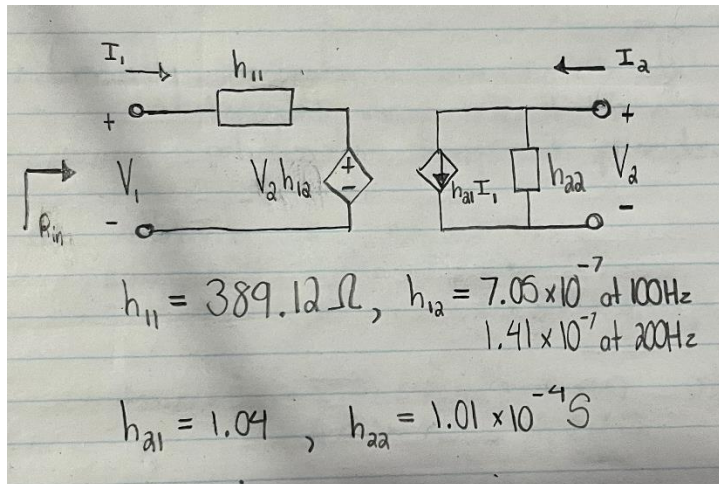 I₁
h₁₁
I₂
+
+
V₁
V₂h₁₂
+
-
h₂₁I₁
h₂₂
V₂
Rin
-
-
h₁₁ = 389.12 Ω, h₁₂ = 7.05 x10⁻⁷ at 100Hz
1.41 x 10⁻⁷ at 200Hz
h₂₁ = 1.04 , h₂₂ = 1.01 x10⁻⁴ S